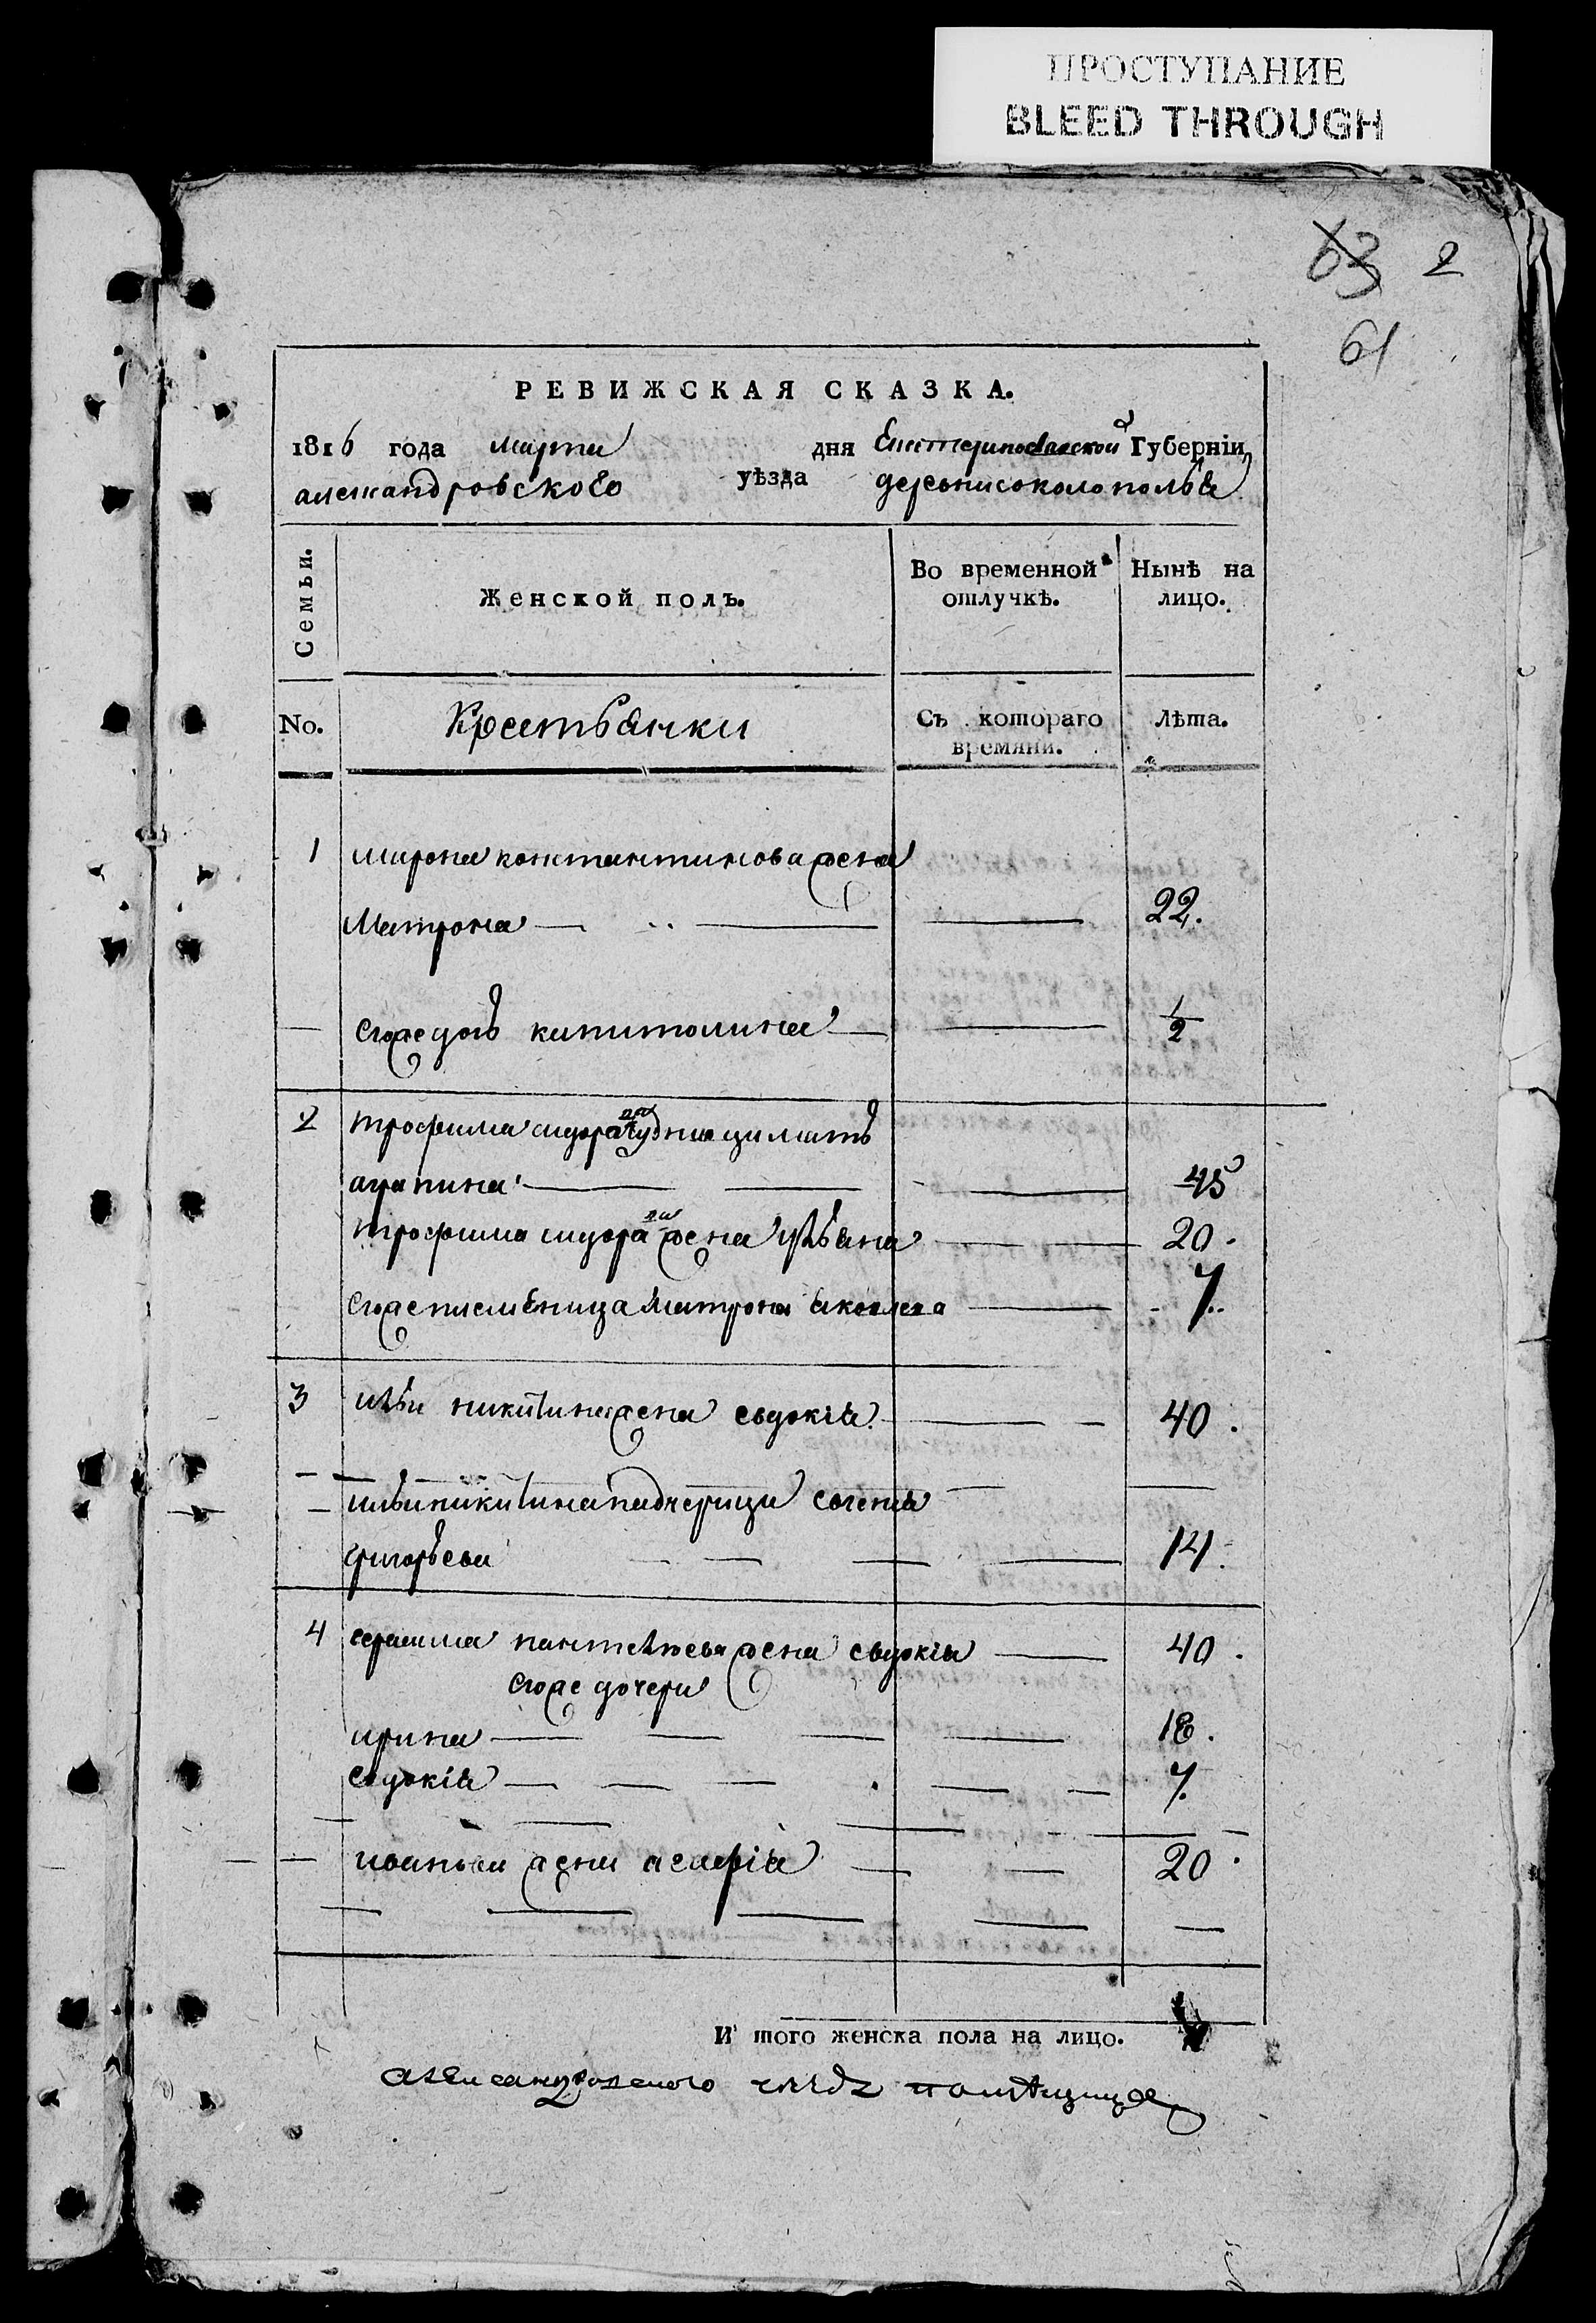 ПРОСТУПАНИЕ
BLEED THROUGH
63 2
61
РЕВИЖСКАЯ СКАЗКА.
1816 года марта дня Екатеринославской Губерніи
александровского уѣзда деревни соколополья
Семьи. Женской полъ. Во временной отлучкѣ. Нынѣ на лицо.
No. Крестьянки Съ котораго времяни. Лѣта.
1 мирона константинова жена
Матрона 22.
егоже дочь капитолина 1/2
2 трофима сидора мать
агапина 45
трофима сидора жена ульяна 20.
егоже племеница Матрона яковлева 7.
3 ильи никитина жена евдокія 40.
ильи никитина падчерица евгенія
григорьева 14.
4 герасима пантелѣева жена евдокія 40.
егоже дочери
ирина 18.
евдокія 7.
жена 20.
И того женска пола на лицо.
александровского помѣщица